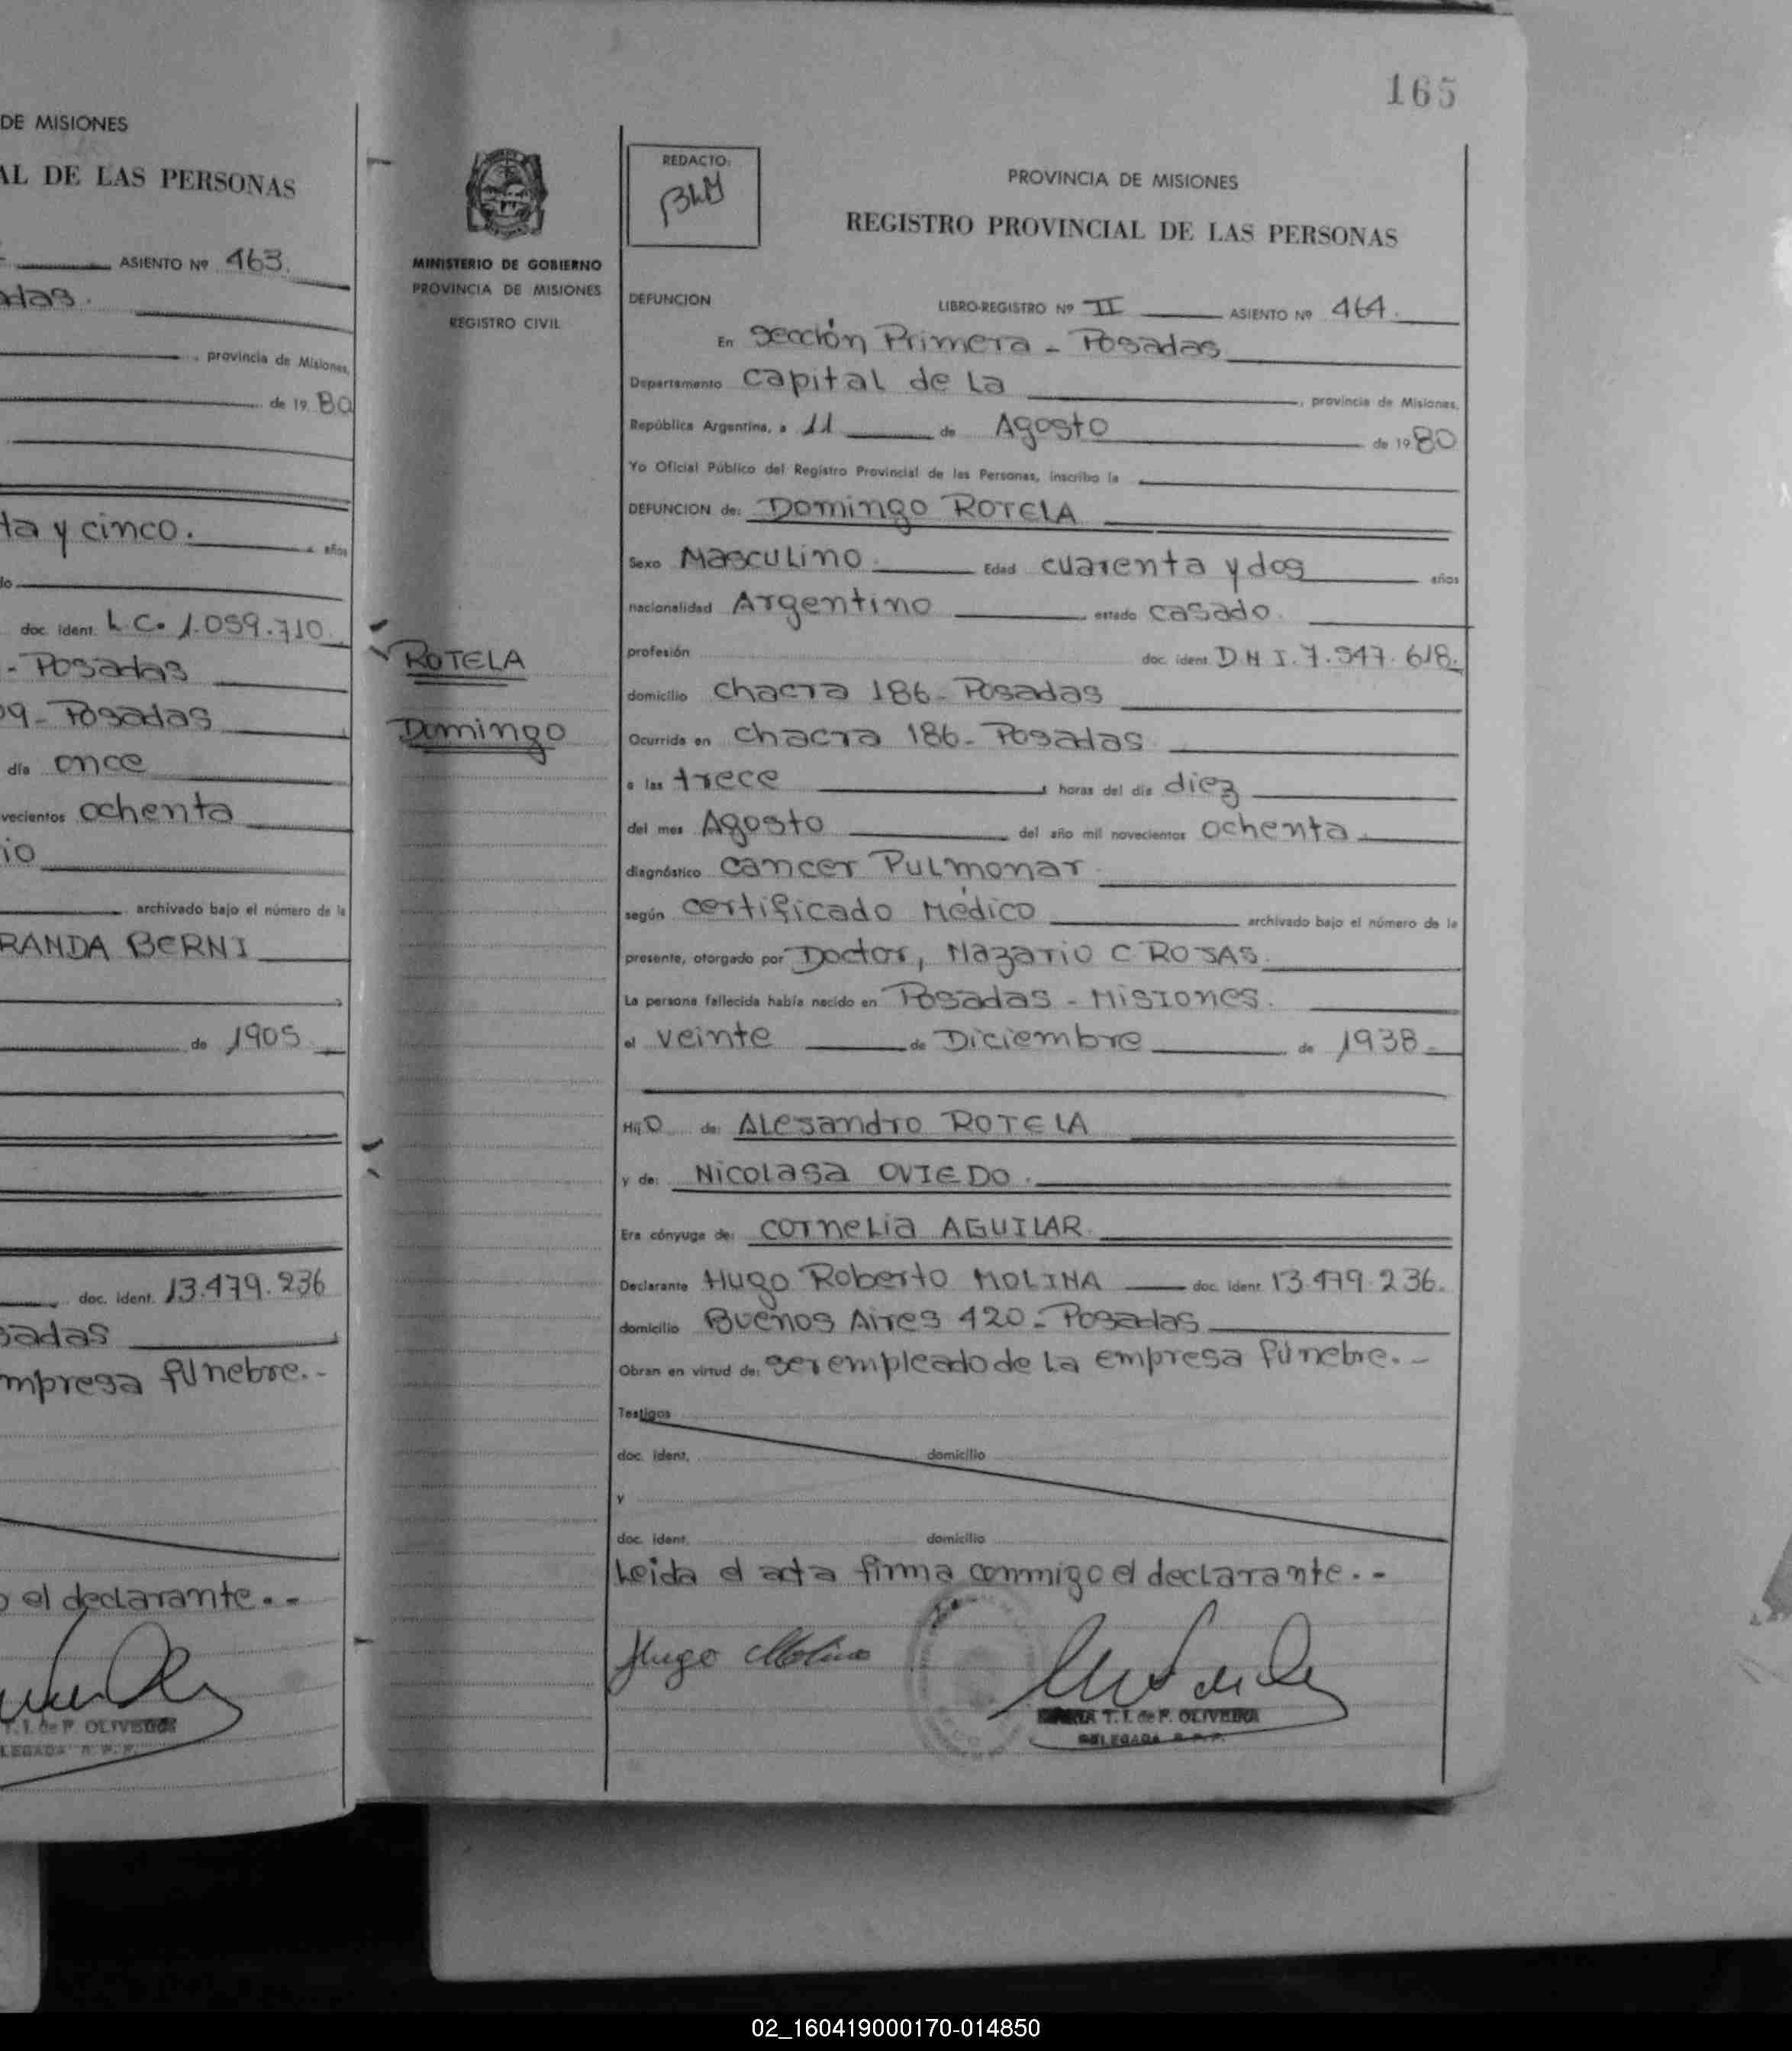 DE MISIONES
AL DE LAS PERSONAS
ASIENTO Nº 463.
adas.
, provincia de Misiones,
de 19 80
ta y cinco. años
do
doc. ident. L.C. 1.059.710
- Posadas
09 - Posadas
día once
vecientos ochenta
io
archivado bajo el número de la
RANDA BERNI
de 1905
doc. ident. 13.479.236
sadas
mpresa fúnebre.-
o el declarante. -
T. I. de F. OLIVEIRA
LEGADA R. P. P.
MINISTERIO DE GOBIERNO
PROVINCIA DE MISIONES
REGISTRO CIVIL
ROTELA
Domingo
165
REDACTO:
PROVINCIA DE MISIONES
REGISTRO PROVINCIAL DE LAS PERSONAS
DEFUNCION LIBRO-REGISTRO Nº II ASIENTO Nº 464.
En sección Primera - Posadas
Departamento capital de La , provincia de Misiones,
República Argentina, a 11 de Agosto de 19 80
Yo Oficial Público del Registro Provincial de las Personas, inscribo la
DEFUNCION de: Domingo ROTELA
Sexo Masculino Edad cuarenta y dos años
nacionalidad Argentino estado casado.
profesión doc. ident. D N I. 7.547.618.
domicilio chacra 186 - Posadas
Ocurrida en chacra 186 - Posadas
a las trece horas del día diez
del mes Agosto del año mil novecientos ochenta
diagnóstico cancer Pulmonar
según certificado Médico archivado bajo el número de la
presente, otorgado por Doctor, Nazario C ROJAS.
La persona fallecida había nacido en Posadas - Misiones.
el veinte de Diciembre de 1938
Hijo de: Alejandro ROTELA
y de: Nicolasa OVIEDO.
Era cónyuge de: Cornelia AGUILAR.
Declarante Hugo Roberto MOLINA doc. ident. 13.479.236.
domicilio Buenos Aires 420 - Posadas
Obran en virtud de: ser empleado de la empresa fúnebre. -
Testigos
doc. ident. domicilio
y
doc. ident. domicilio
Leida el acta firma conmigo el declarante. -
Hugo Molina
T. I. de F. OLIVEIRA
DELEGADA R. P. P.
02_160419000170-014850